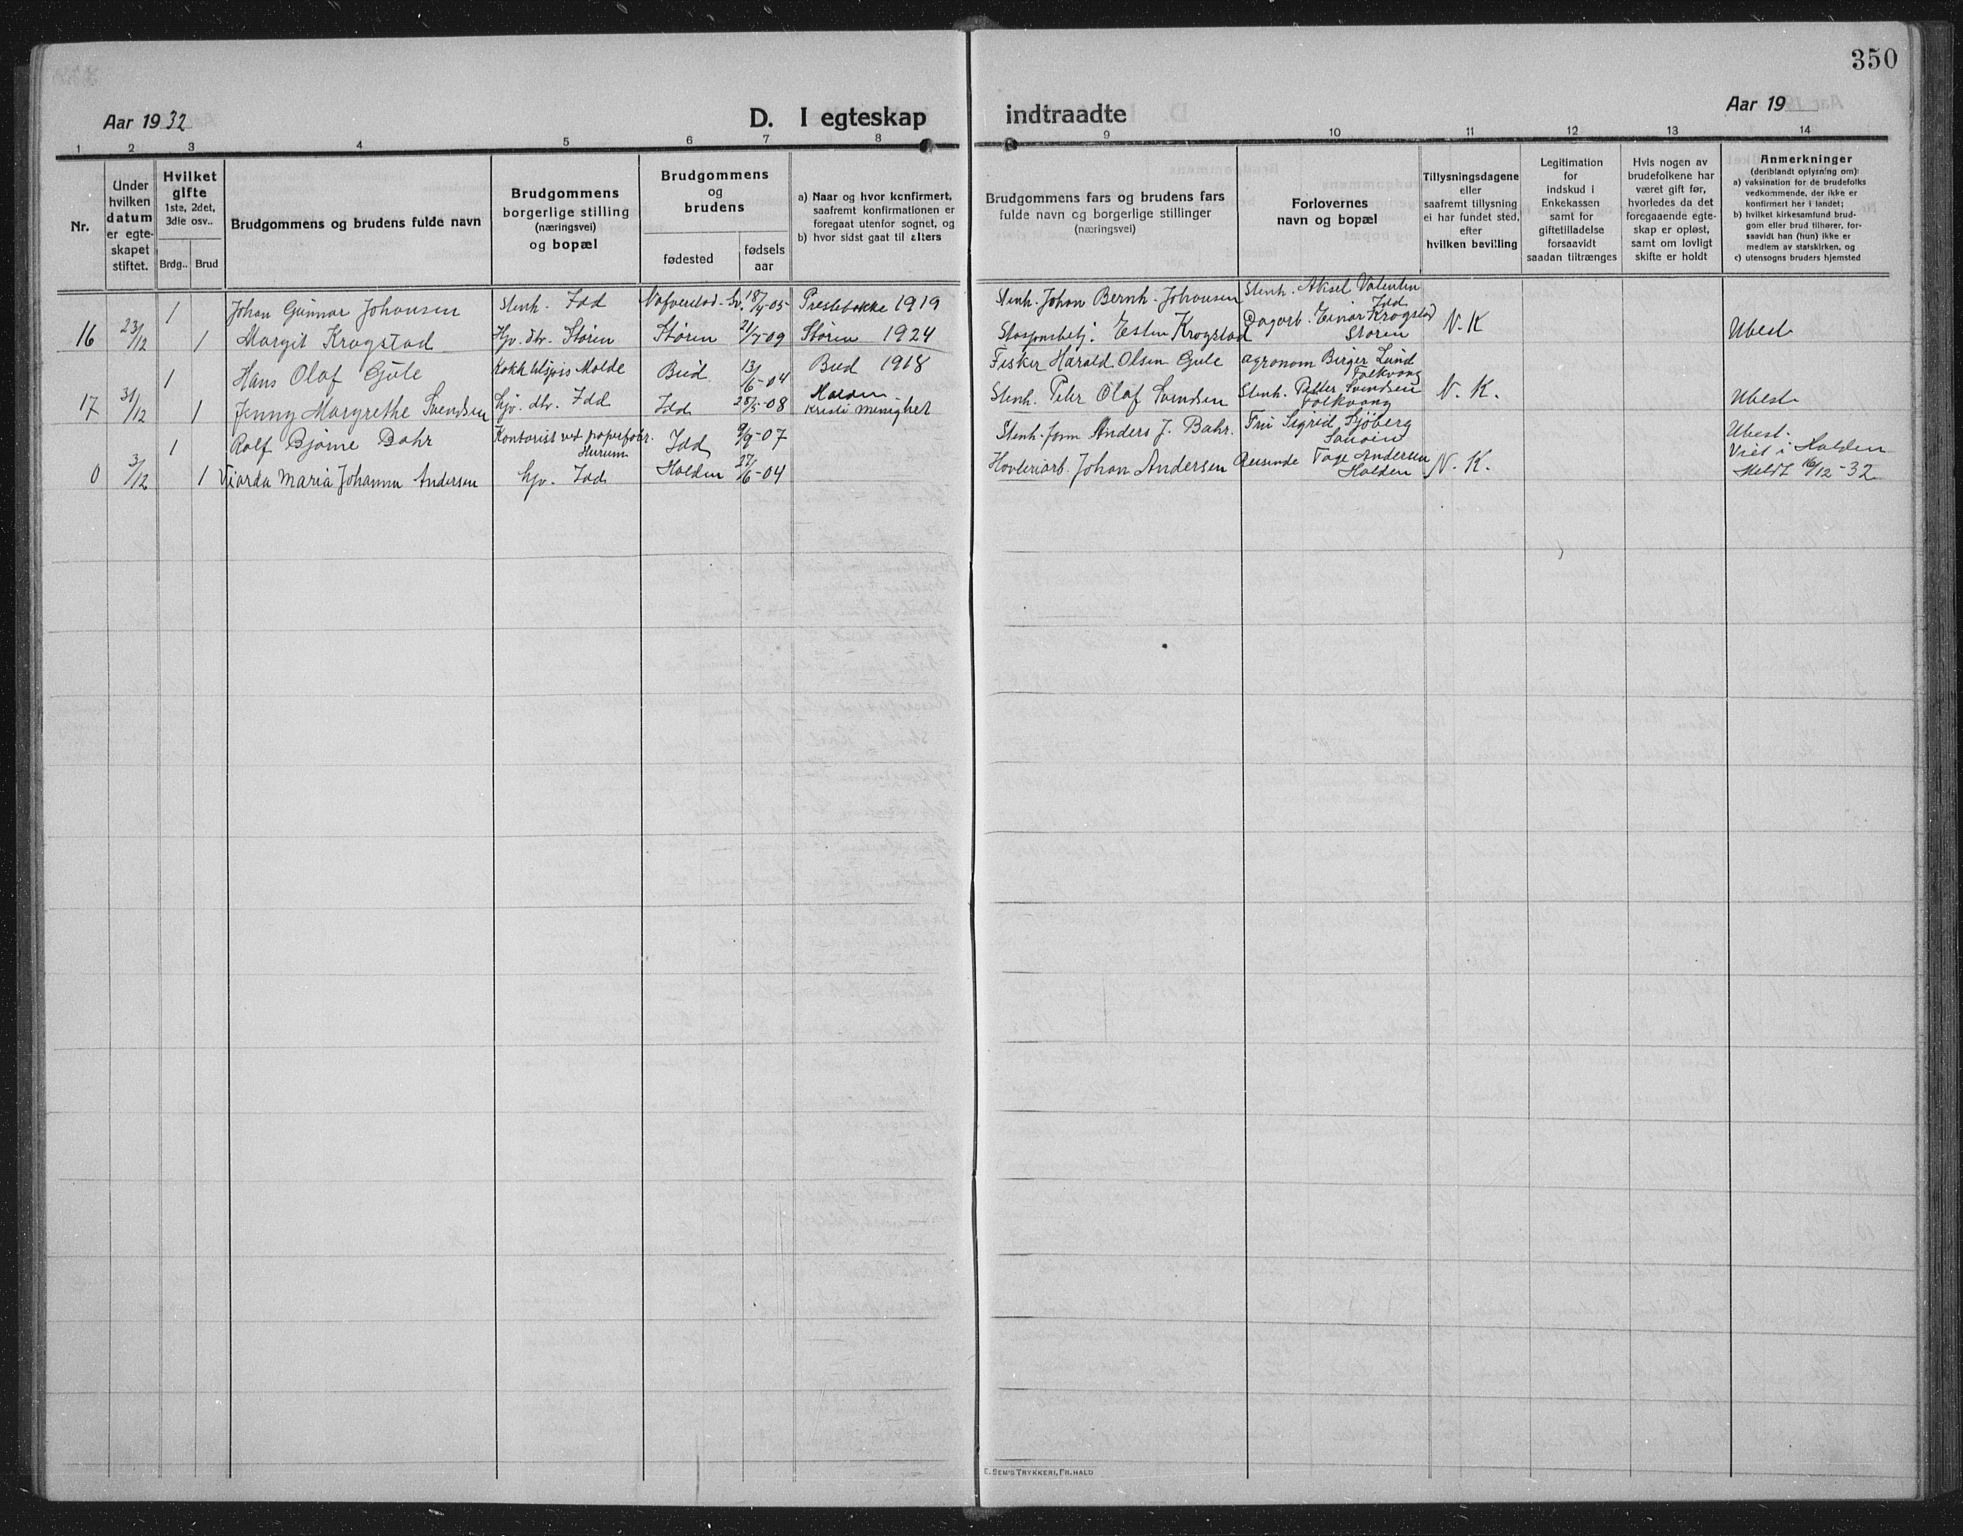 350
Aar 1932
D. I egteskap
indtraadte
Aar 19
1 2 3 4 5 6 7 8 9 10 11 12 13 14
Nr.
Under
hvilken
datum
er egte-
skapet
stiftet.
Hvilket
gifte
1ste, 2det,
3die osv..
Brdg.. Brud
Brudgommens og brudens fulde navn
Brudgommens
borgerlige stilling
(næringsvei)
og bopæl
Brudgommens
og
brudens
fødested
fødsels
aar
a) Naar og hvor konfirmert,
saafremt konfirmationen er
foregaat utenfor sognet, og
b) hvor sidst gaat til alters
Brudgommens fars og brudens fars
fulde navn og borgerlige stillinger
(næringsvei)
Forlovernes
navn og bopæl
Tillysningsdagene
eller
saafremt tillysning
ei har fundet sted,
efter
hvilken bevilling
Legitimation
for
indskud i
Enkekassen
samt for
giftetilladelse
forsaavidt
saadan tiltrænges
Hvis nogen av
brudefolkene har
været gift før,
hvorledes da det
foregaaende egte-
skap er opløst,
samt om lovligt
skifte er holdt
Anmerkninger
(deriblandt oplysning om):
a) vaksination for de brudefolks
vedkommende, der ikke er
konfirmert her i landet;
b) hvilket kirkesamfund brud-
gom eller brud tilhører, for-
saavidt han (hun) ikke er
medlem av statskirken, og
c) utensogns bruders hjemsted
1 Johan Gunnar Johansen Stenh. Idd 18/4-05 Prestebakke 1919 Stenh. Johan Bernh. Johansen Stenh. Aksel Valentin
Idd
16 23/12 1 Margit Krogstad Hj. dtr. Støren Støren 21/5-09 Støren 1924 Esten Krogstad Dagarb. Einar Krogstad N. K Ubest.
Støren
1 Hans Olaf Gule Molde Bud 13/6-04 Bud 1918 Fisker Harald Olsen Gule agronom Birger Lund
Folkvang
17 31/12 1 Jenny Margrethe Svendsen Hj. dtr. Idd Idd 28/5-08 Halden Stenh. Peter Olaf Svendsen Stenh. Petter Svendsen N. K. Ubest.
Kristi Menighet
Folkvang
1 Rolf Bjarne Bahr Kontorist ved papirfabr. Idd 9/9-07 Stenh. form Anders J. Bahr. Fru Sigrid Sjøberg Ubest.
Hurum
Viet i Halden
0 3/12 1 Maria Johanna Andersen Hj. Idd Halden 27/6-04 Høvleriarb. Johan Andersen Reisende Tage Andersen N. K. Meldt 16/12-32
Halden
E. SEM'S TRYKKERI, FR.HALD